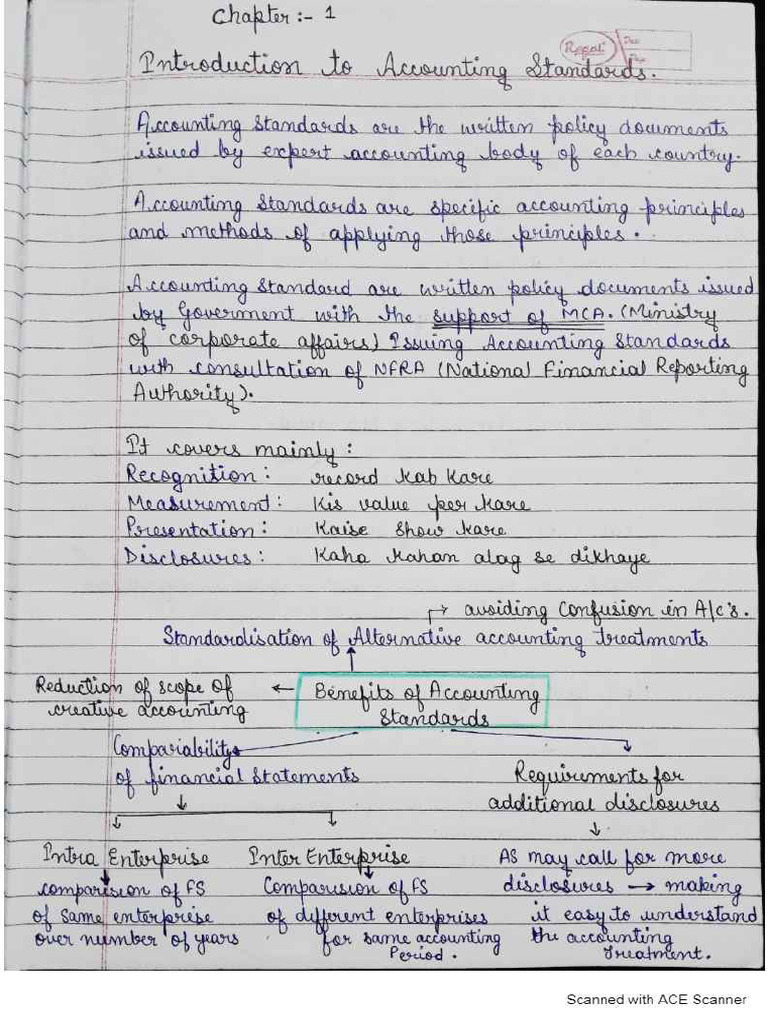 Chapter :- 1
Repeat
Introduction to Accounting Standards.
Accounting Standards are the written policy documents
issued by expert accounting body of each country.
Accounting Standards are specific accounting principles
and methods of applying those principles.
Accounting Standard are written policy documents issued
by Goverment with the support of MCA. (Ministry
of corporate affairs) Issuing Accounting Standards
with consultation of NFRA (National Financial Reporting
Authority).
It covers mainly :
Recognition : record kab kare
Measurement : Kis value per kare
Presentation : Kaise show kare
Disclosures : Kaha Kahan alag se dikhaye
→ avoiding Confusion in A/c's.
Standardisation of Alternative accounting treatments
Reduction of scope of
creative accounting
← Benefits of Accounting
Standards
Compariability
of financial Statements
Requirements for
additional disclosures
Intra Enterprise
comparision of FS
of same enterprise
over number of years
Inter Enterprise
Comparusion of FS
of different enterprises
for same accounting
Period.
AS may call for more
disclosures → making
it easy to understand
the accounting
treatment.
Scanned with ACE Scanner